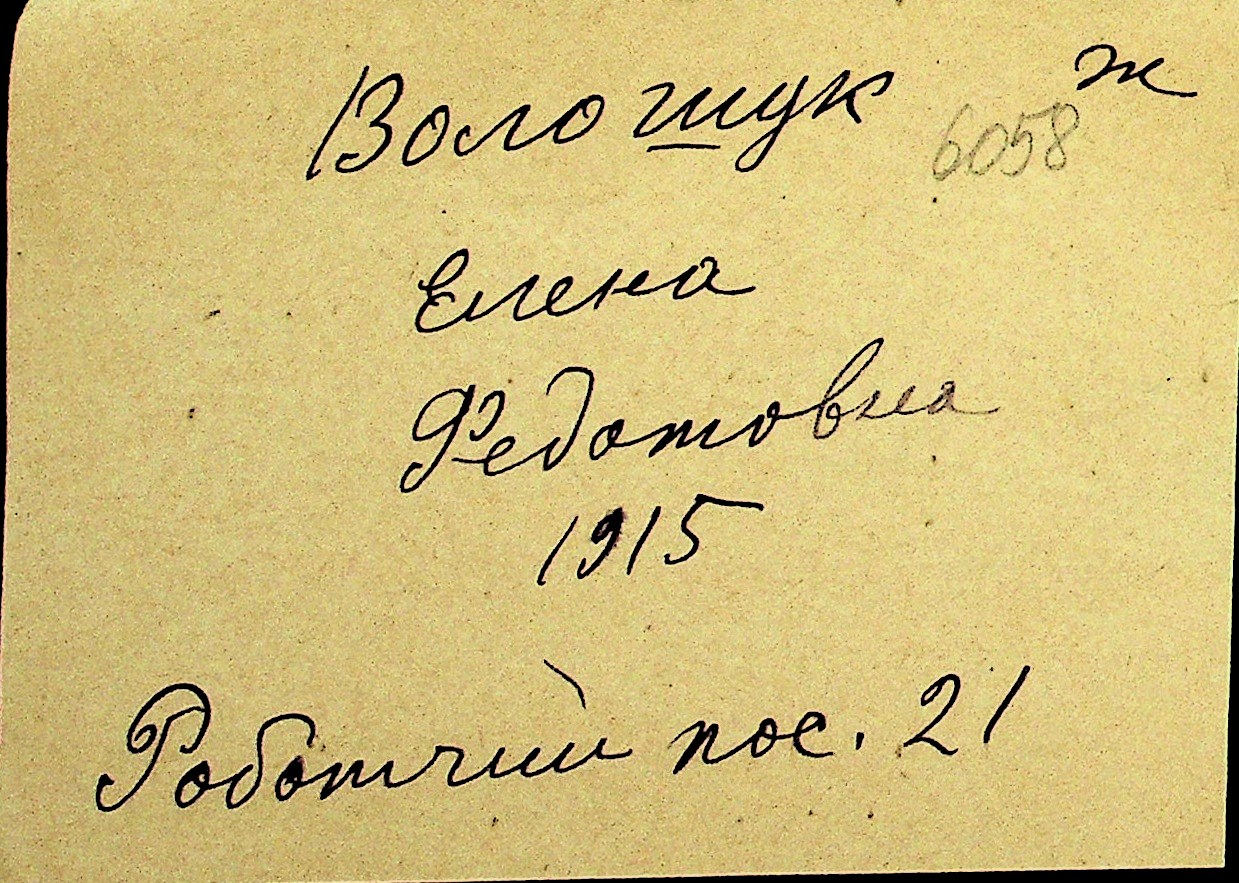 Волошук ж
6058
Елена
Федотовна
1915
Роботчий пос. 21